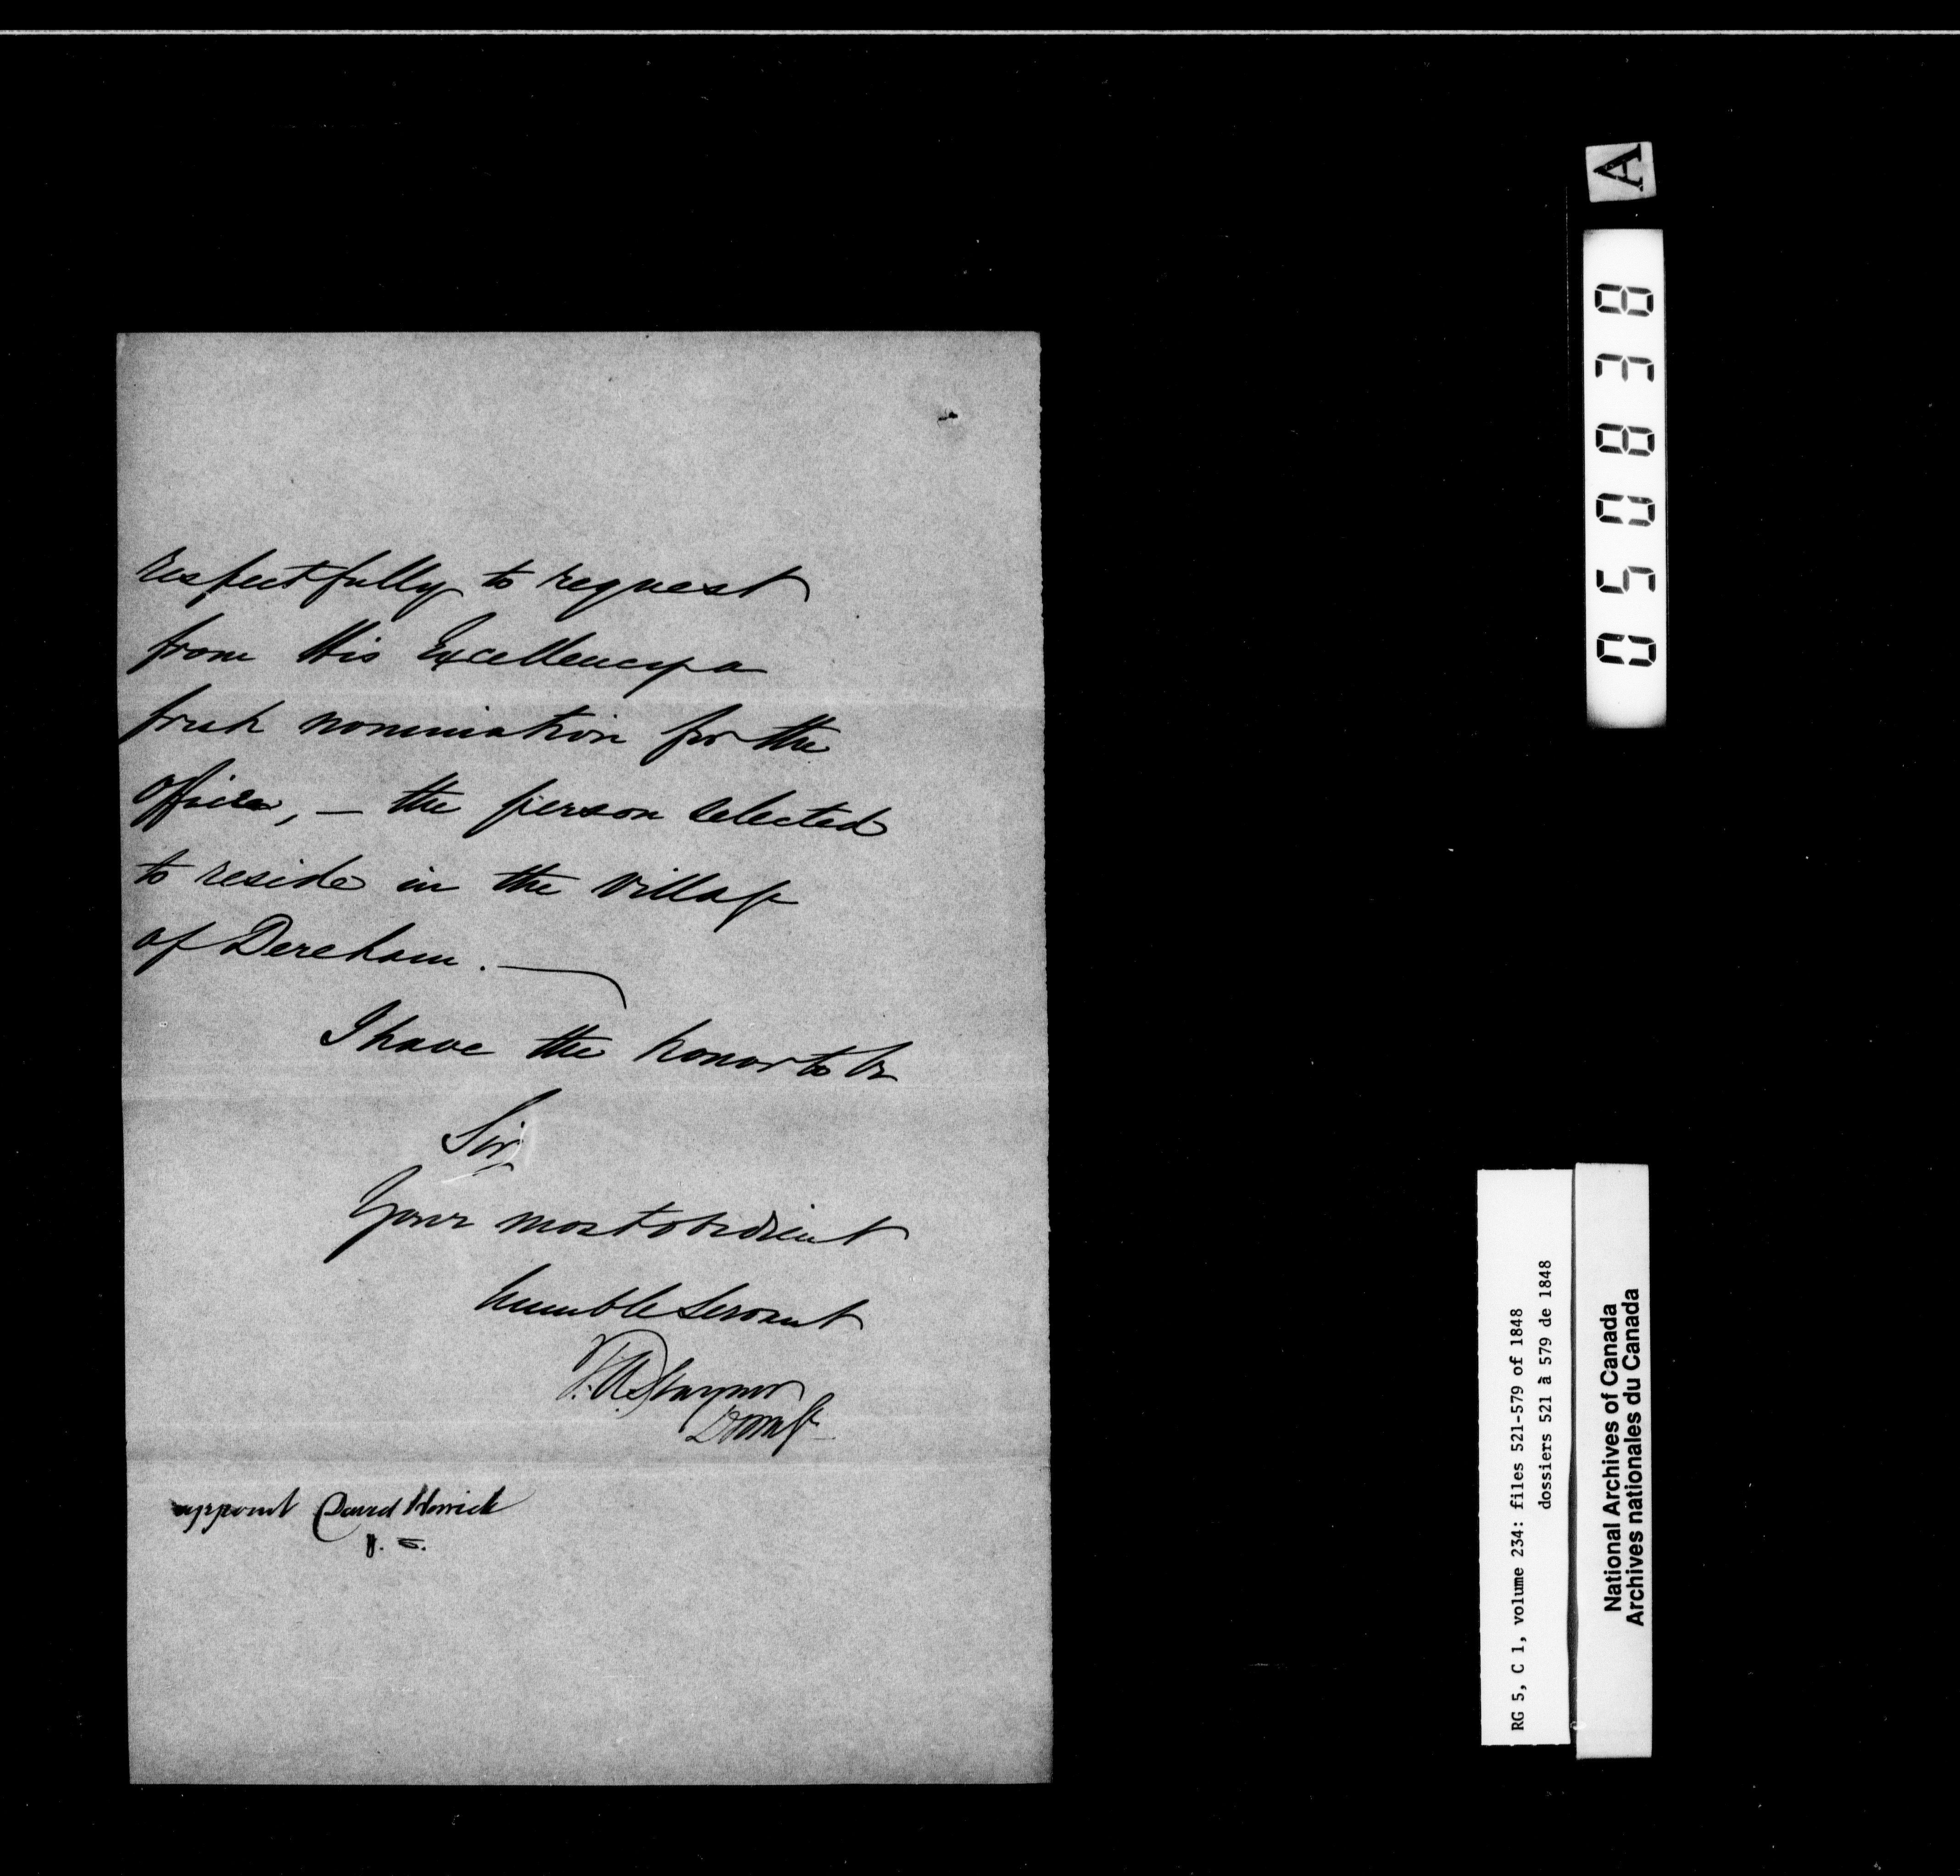 respectfully to request
from His Excellency a
fresh nomination for the
office, — the person selected
to reside in the village
of Dereham. —
I have the honor to be
Sir,
Your most obedient
humble servant
T. A. Stayner
DPMG
appoint David Herrick
A
050838
RG 5, C 1, volume 234: files 521-579 of 1848
dossiers 521 à 579 de 1848
National Archives of Canada
Archives nationales du Canada